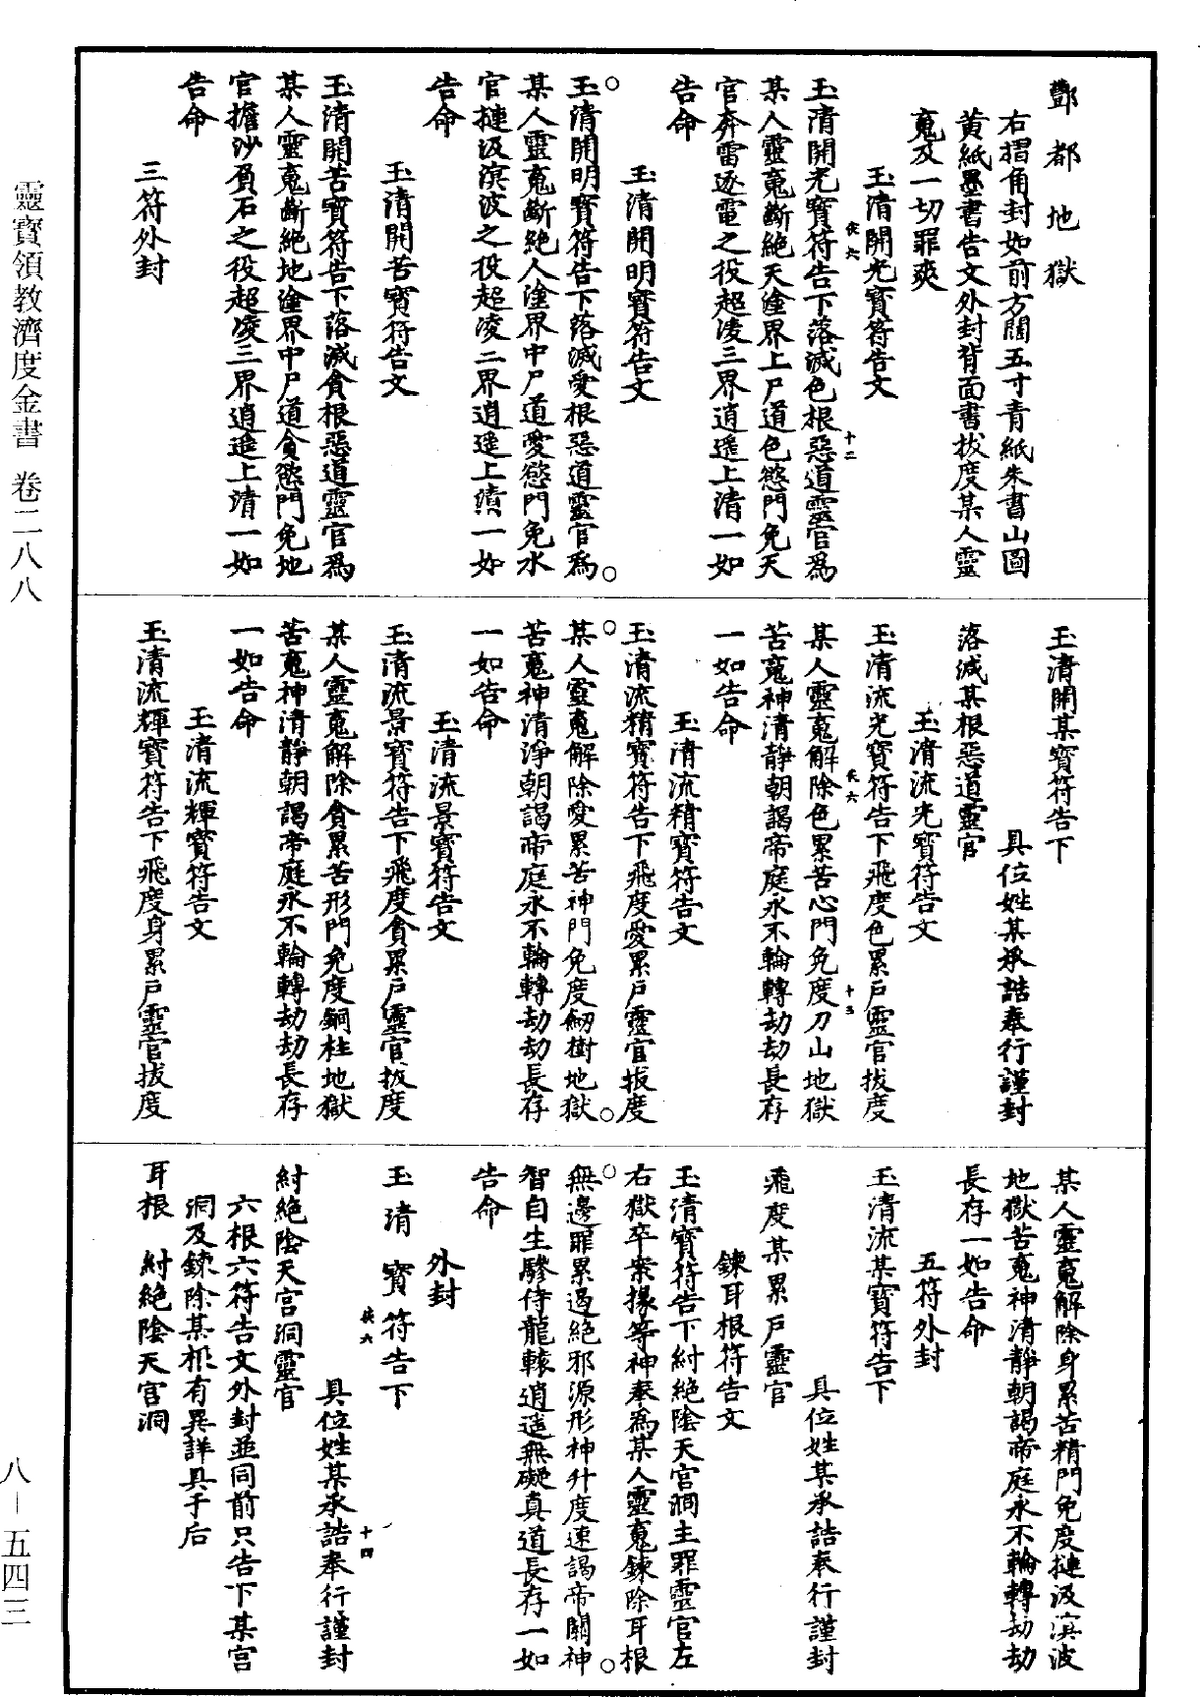 酆都地獄
右摺角封如前方闊五寸青紙朱書山圖
黃紙墨書告文外封背面書拔度某人靈
䰟及一切罪爽
玉清開光寶符告文
玉清開光寶符告下落滅色根惡道靈官爲
某人靈䰟斷絕天塗界上尸道色慾門免天
官奔雷逐電之役超凌三界逍遥上清一如
告命
玉清開明寶符告文
玉清開明寶符告下落滅愛根惡道靈官爲
某人靈䰟斷絕人塗界中尸道愛慾門免水
官摙汲溟波之役超凌二界逍遥上清一如
告命
玉清開苦寶符告文
玉清開苦寶符告下落滅貪根惡道靈官爲
某人靈䰟斷絕地塗界中尸道貪慾門免地
官擔沙負石之役超凌三界逍遥上清一如
告命
三符外封
玉清開某寶符告下
具位姓某承誥奉行謹封
落滅某根惡道靈官
玉清流光寶符告文
玉清流光寶符告下飛度色累戶靈官拔度
某人靈䰟解除色累苦心門免度刀山地獄
苦䰟神清靜朝謁帝庭永不輪轉劫劫長存
一如告命
玉清流精寶符告文
玉清流精寶符告下飛度愛累戶靈官拔度
某人靈䰟解除愛累苦神門免度劒樹地獄
苦䰟神清淨朝謁帝庭永不輪轉劫劫長存
一如告命
玉清流景寶符告文
玉清流景寶符告下飛度貪累戶靈官拔度
某人靈䰟解除貪累苦形門免度銅柱地獄
苦䰟神清靜朝謁帝庭永不輪轉劫劫長存
一如告命
玉清流輝寶符告文
玉清流輝寶符告下飛度身累戶靈官拔度
某人靈䰟解除身累苦精門免度摙汲溟波
地獄苦䰟神清靜朝謁帝庭永不輪轉劫劫
長存一如告命
五符外封
玉清流某寶符告下
具位姓某承誥奉行謹封
飛度某累戶靈官
鍊耳根符告文
玉清寶符告下紂絕陰天宮洞主罪靈官左
右獄卒案掾等神奉爲某人靈䰟鍊除耳根
無邊罪累遏絕邪源形神升度速謁帝關神
智自生驂侍龍轅逍遥無礙真道長存一如
告命
外封
玉清寶符告下
具位姓某承誥奉行謹封
紂絕陰天宮洞靈官
六根六符告文外封並同前只告下某宮
洞及鍊除某根有異詳具于后
耳根　紂絕陰天宮洞
靈寶領教濟度金書　卷二八八
八－五四三